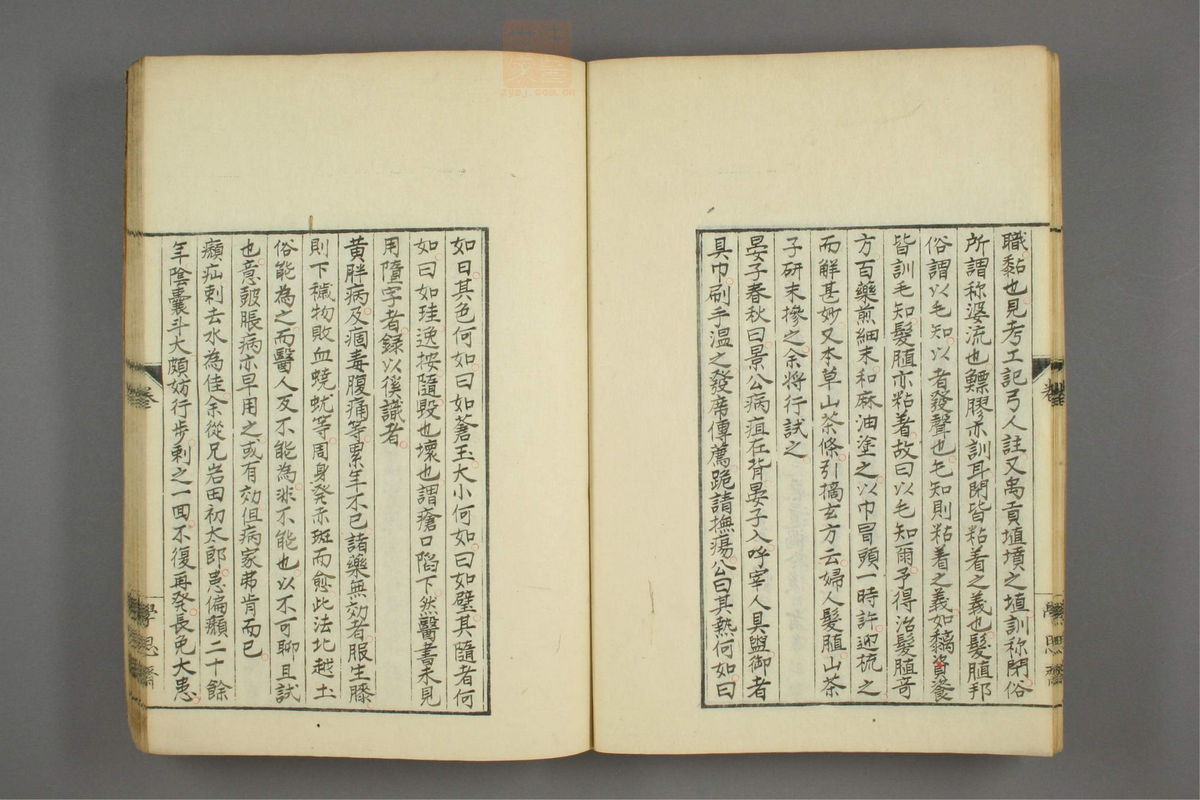 職黏也見考工記弓人註又禹貢埴墳之埴訓称閇俗
所謂称婆流也鰾膠亦訓耳閉皆粘着之義也髮䐈邦
俗謂以毛知以者發聲也毛知則粘着之義如䅥資餈
皆訓毛知髮䐈亦粘着故曰以毛知爾予得治髮䐈奇
方百藥煎細末和麻油塗之以巾冒頭一時許迎梳之
而解甚妙又本草山茶條引摘玄方云婦人髮䐈山茶
子研末摻之余將行試之
晏子春秋曰景公病疽在背晏子入呼宰人具盥御者
具巾刷手溫之發席傅薦跪請撫瘍公曰其熱何如曰
如日其色何如曰如蒼玉大小何如曰如璧其隨者何
如曰如珪逸按隨毀也壞也謂瘡口陷下然醫書未見
用隨字者錄以俟識者
黃胖病及痼毒腹痛等累年不已諸藥無効者服生䕨
則下穢物敗血蟯蚘等周身發赤斑而愈此法北越土
俗能為之而醫人反不能為非不能也以不可聊且試
也意皷脹病亦早用之或有効但病家弗肯而已
㿗疝刺去水為佳余從兄岩田初太郎患偏㿗二十餘
年陰囊斗大頗妨行步刺之一回不復再發長免大患
卷
學思齋
卷
學思齋
zysj.com.cn